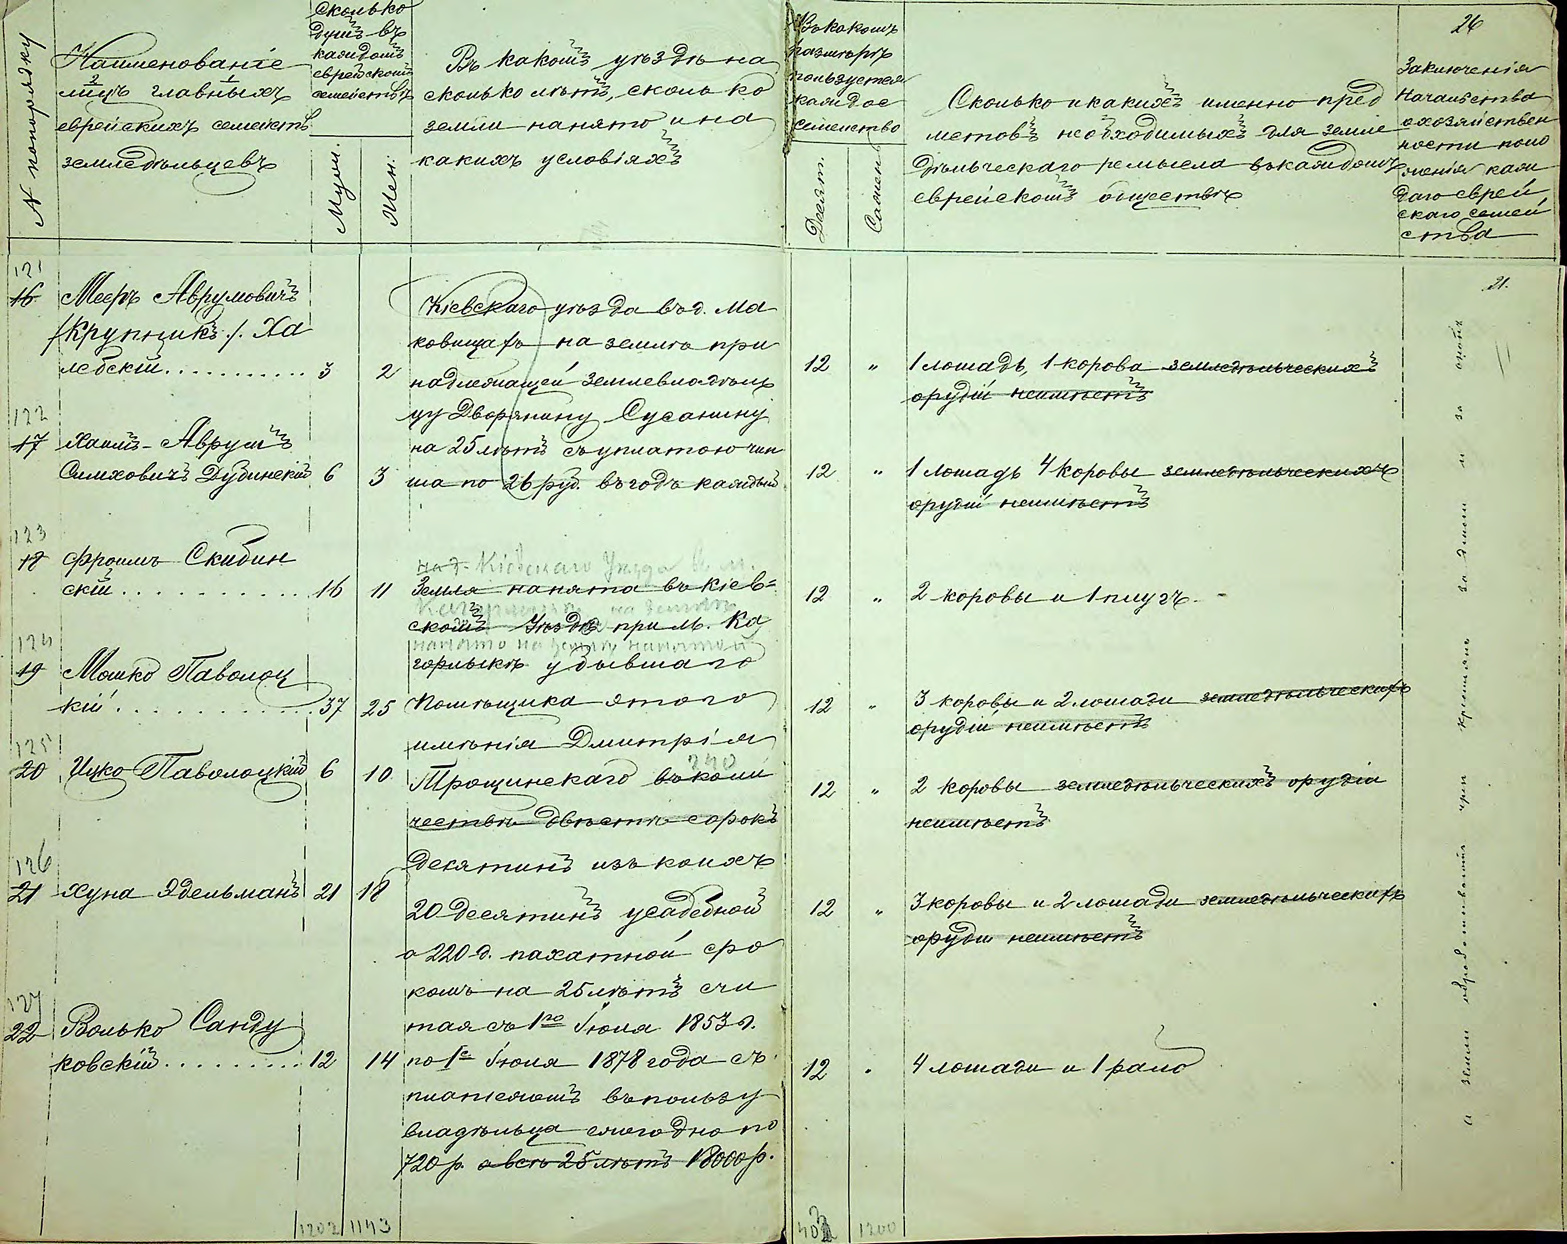 N попорядку
Наименованіе
лицъ главныхъ
еврейскихъ семействъ
земледѣльцевъ
Сколько
душъ въ
каждомъ
еврейскомъ
семействѣ
Мужи.
Жен:
Въ какомъ уѣздѣ на
сколько лѣтъ, сколько
земли нанято и на
какихъ условіяхъ
Въ какомъ
размѣрѣ
пользуется
каждое
семейство
Десят.
Сажен.
Сколько и какихъ именно пред
метовъ необходимыхъ для земле
дѣльческаго ремысла въ каждомъ
еврейскомъ обществѣ
26
Заключенія
Начальства
о хозяйствен
ности поло
женія каж
даго еврей
скаго семей
ства
121
16
Мееръ Аврумовичъ
/Крупникъ/. Ха
лебскій
3
2
Кіевскаго уѣзда въ д. Ма
ковищахъ на землѣ при
надлежащей землевладѣль
цу Дворянину Сусанину
на 25 лѣтъ съ уплатою чин
ша по 26 руб. въ годъ каждый
12 "
1 лошадь, 1 корова земледѣльческихъ
орудій неимѣетъ
21.
122
17
Хаимъ-Аврумъ
Симховичъ Дубинскій
6
3
12 "
1 лошадь 4 коровы земледѣльческихъ
орудій неимѣетъ
123
18
Фроимъ Скибин
скій
16
11
Кіевскаго Уезда в м.
Земля нанята въ Кіев=
на земли
скомъ Уѣздѣ при м. Ка
горлыкѣ у бывшаго
12 "
2 коровы и 1 плугъ.
124
19
Мошко Паволоц
кій
37
25
помѣщика этого
имѣнія Дмитрія
12 "
3 коровы и 2 лошади земледѣльческихъ
орудій неимѣетъ
125
20
Ицко Паволоцкій
6
10
240
Трощинскаго въ коли
чествѣ двѣсти сорокъ
десятинъ изъ коихъ
12 "
2 коровы земледѣльческихъ орудій
неимѣетъ
126
21
Хуна Эдельманъ
21
18
20 десятинъ усадебной
а 220 д. пахатной сро
комъ на 25 лѣтъ счи
12 "
3 коровы и 2 лошади земледѣльческихъ
орудій неимѣетъ
127
22
Волько Санду
ковскій
12
14
тая съ 1го Іюля 1853 г.
по 1е Іюля 1878 года съ
платежомъ въ пользу
владѣльца ежегодно по
720 р. а всѣ 25 лѣтъ 18000 р.
12 "
4 лошади и 1 рало
а земли обработываютъ чрез крестьянъ за деньги и за
1202
1143
1200